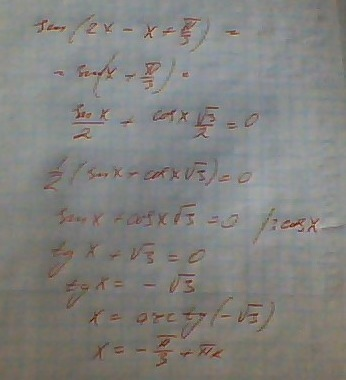 sin (2x - x + π/3) =
= sin(x + π/3) =
sin x/2 + cos x √3/2 = 0
1/2 (sin x + cos x √3) = 0
sin x + cos x √3 = 0 /: cos x
tg x + √3 = 0
tg x = - √3
x = arctg (-√3)
x = - π/3 + πk